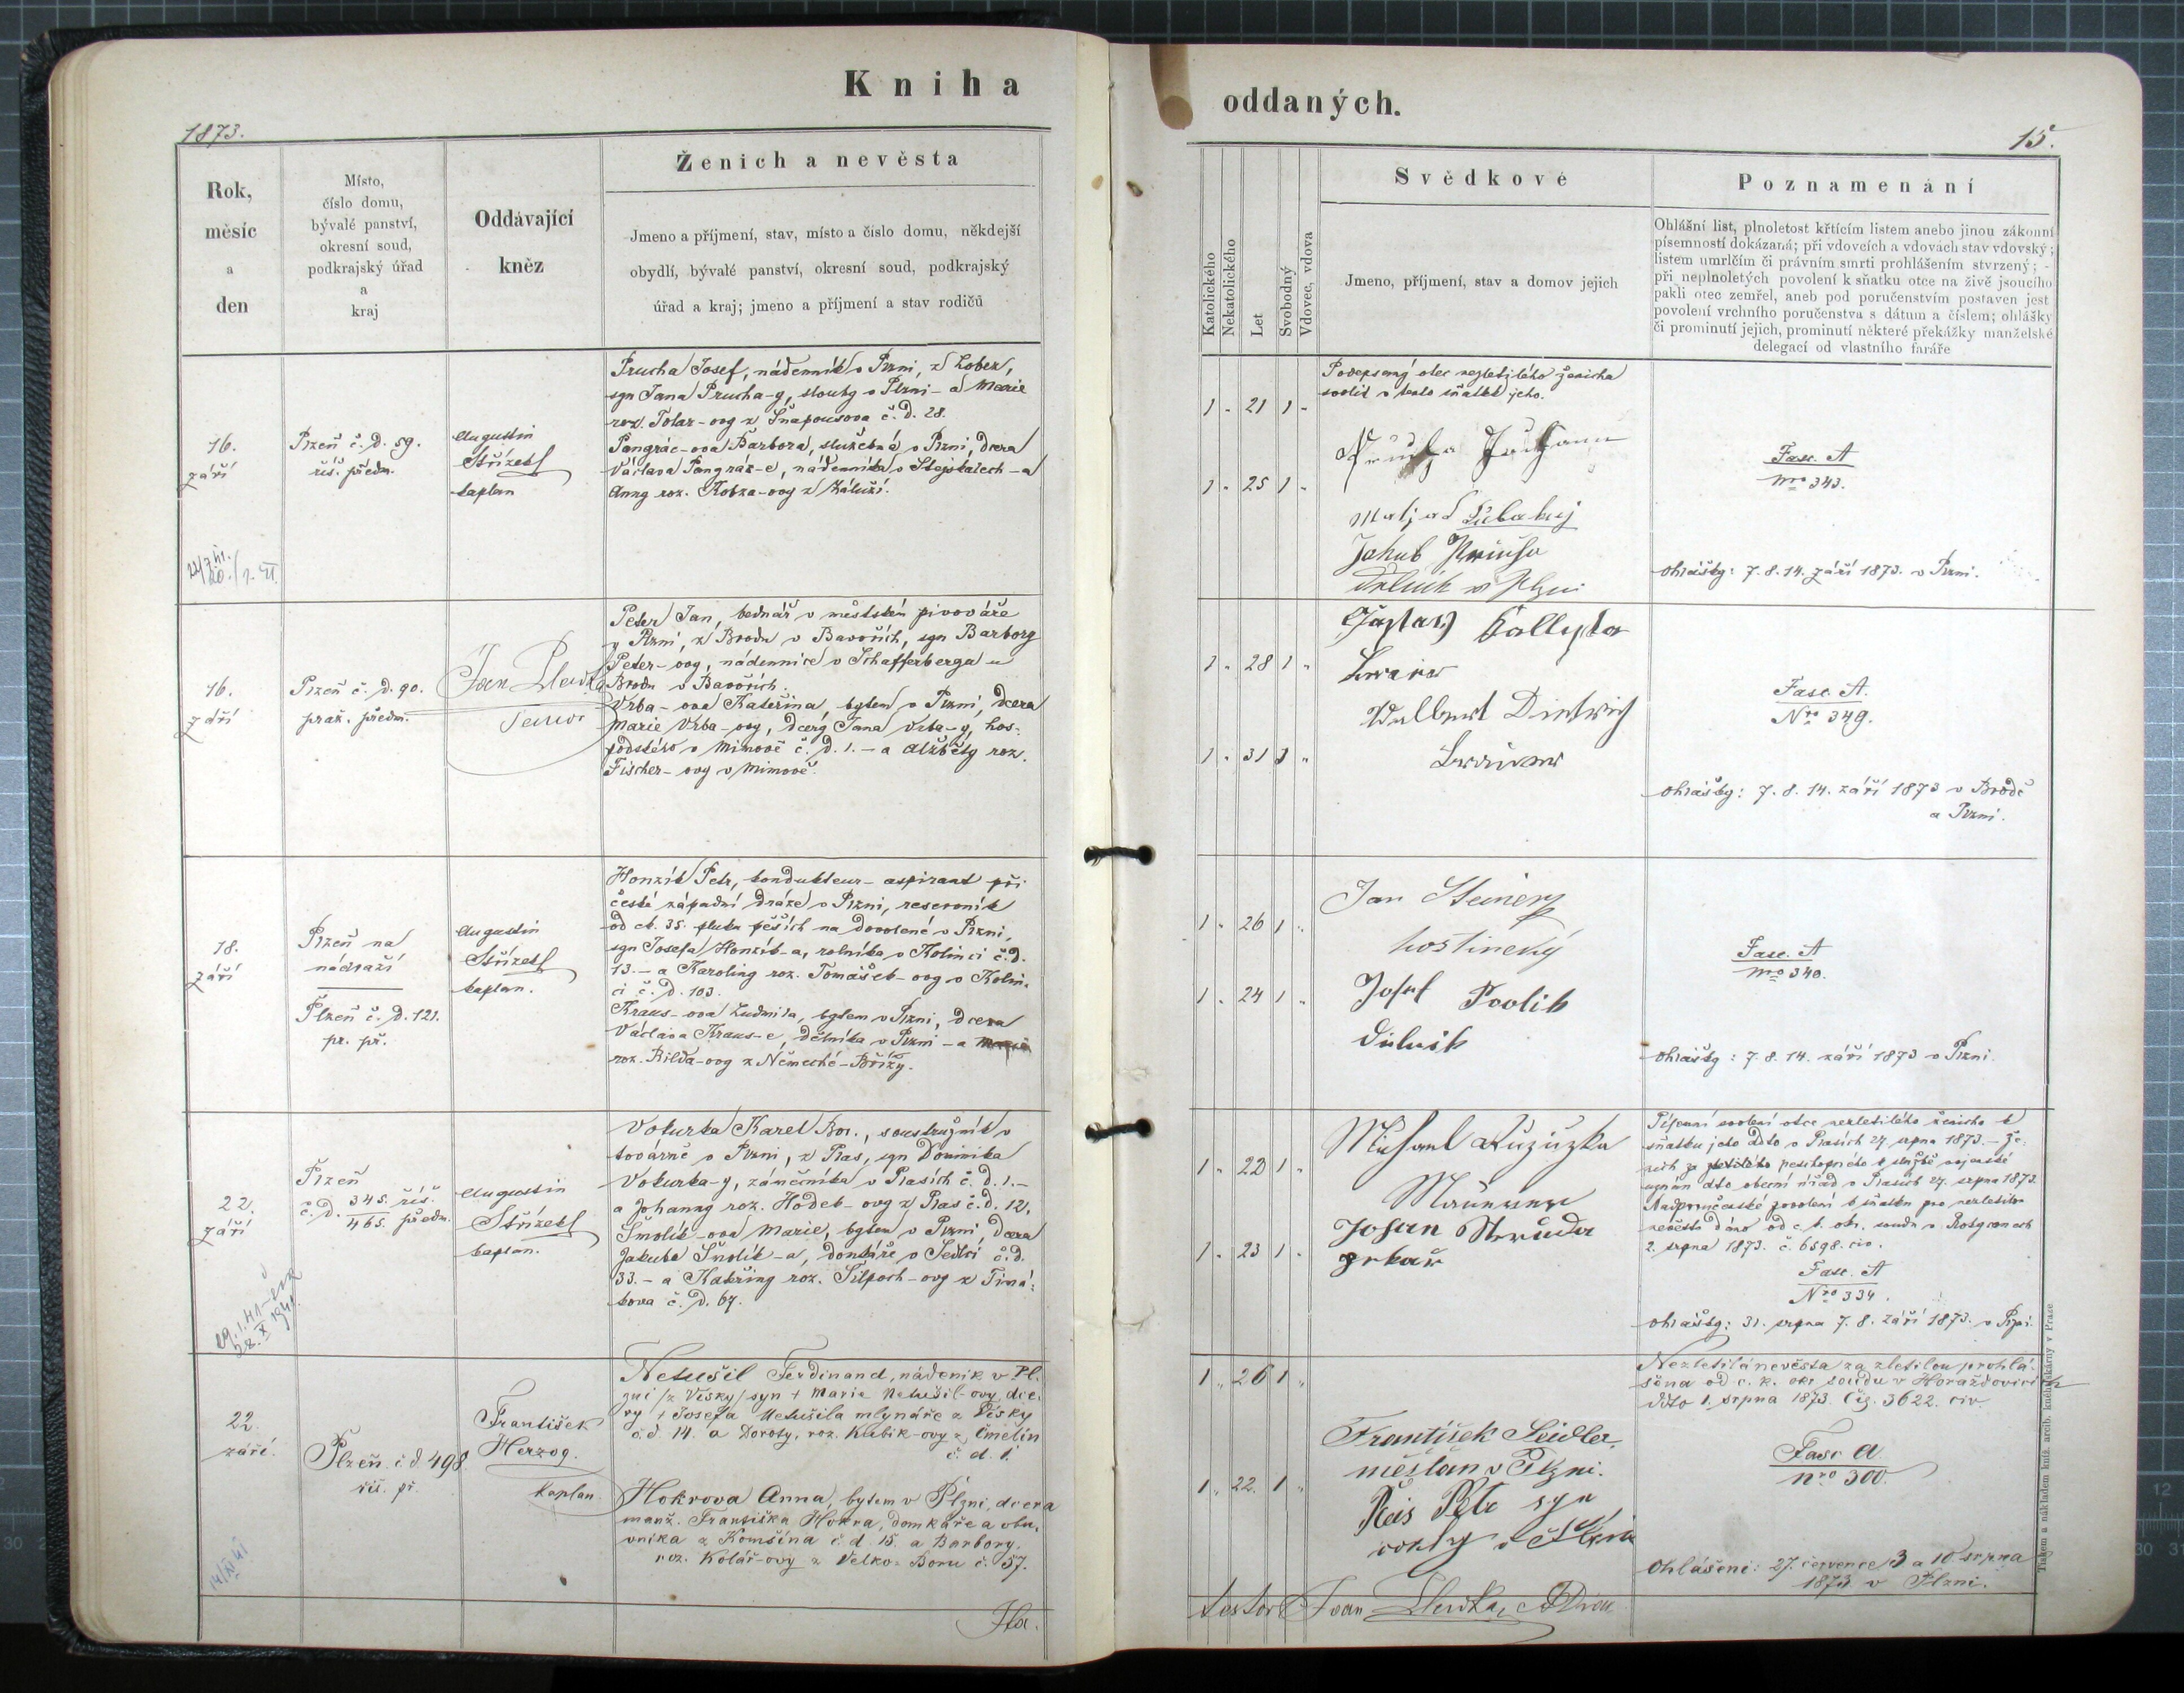 Kniha
1873.
Rok,
měsíc
a
den
Místo,
číslo domu,
bývalé panství,
okresní soud,
podkrajský úřad
a
kraj
Oddávající
kněz
Ženich a nevěsta
Jmeno a příjmení, stav, místo a číslo domu, někdejší
obydlí, bývalé panství, okresní soud, podkrajský
úřad a kraj; jmeno a příjmení a stav rodičů
16.
září
Plzeň č. d. 59.
říš. předm.
Augustin
Střízek
kaplan
Prucha Josef, nádenník v Plzni, z Lobez,
syn Jana Prucha-y, slouhy v Plzni - a Marie
roz. Tolar-ovy z Šnapousova č. d. 28.
Pangrác-ova Barbora, služebná v Plzni, dcera
Václava Pangrác-e, nádenníka v Stejskalech - a
Anny roz. Kobza-ovy z Záluží.
16.
září
Plzeň č. d. 90.
praž. předm.
Jan
Peter Jan, bednář v městském pivováře
v Plzni, z Brodu v Bavořích, syn Barbory
Peter-ovy, nádennice v Schafferbergu u
Brodu v Bavořích.
Vrba-ova Kateřina, bytem v Plzni, dcera
Marie Vrba-ovy, dcery Jana Vrba-y, hos-
podského v Mimově č. d. 1. - a Alžběty roz.
Fischer-ovy v Mimově.
18.
září
Plzeň na
nádraží
Plzeň č. d. 121.
pr. př.
Augustin
Střízek
kaplan.
Honzík Petr, kondukteur-aspirant při
české západní dráze v Plzni, reservník
od ck. 35. pluku pěších na dovolené v Plzni,
syn Josefa Honzík-a, rolníka v Kolinci č. d.
13. - a Karoliny roz. Tomášek-ovy v Kolin-
ci č. d. 103.
Kraus-ova Ludmila, bytem v Plzni, dcera
Václava Kraus-e, dělníka v Plzni - a
roz. Bilda-ovy z Německé-Břízy.
22.
září
Plzeň
č. d. 345. říš.
465. předm.
Augustin
Střízek
kaplan.
Vokurka Karel Bor., soustružník v
továrně v Plzni, z Plas, syn Dominika
Vokurka-y, zámečníka v Plasích č. d. 1. -
a Johanny roz. Hodek-ovy z Plas č. d. 12.
Šmolík-ova Marie, bytem v Plzni, dcera
Jakuba Šmolík-a, domkáře v Sedlci č. d.
33. - a Kateřiny roz. Silpoch-ovy z Timá-
kova č. d. 64.
22.
září.
Plzeň č. d. 498
říš. př.
František
Herzog.
Kaplan.
Netušil Ferdinand, nádenik v Pl-
zni /z Vísky/ syn + Marie Netušil-ovy, dce-
ry + Josefa Netušila mlynáře z Vísky
č. d. 14. a Doroty, roz. Kubik-ovy z Čmelín
č. d. 1.
Hokrova Anna, bytem v Plzni, dcera
manž. Františka Hokra, domkáře a obu-
vníka z Komšína č. d. 15. a Barbory,
roz. Kolář-ovy z Velko-Boru č. 57.
oddaných.
15.
Katolického
Nekatolického
Let
Svobodný
Vdovec, vdova
Svědkové
Jmeno, příjmení, stav a domov jejich
Poznamenání
Ohlášní list, plnoletost křtícím listem anebo jinou zákonní
písemností dokázaná; při vdovcích a vdovách stav vdovský;
listem umrlčím či právním smrti prohlášením stvrzený; -
při neplnoletých povolení k sňatku otce na živě jsoucího
pakli otec zemřel, aneb pod poručenstvím postaven jest
povolení vrchního poručenstva s dátum a číslem; ohlášky
či prominutí jejich, prominutí některé překážky manželské
delegací od vlastního faráře
1 " 21 1 "
1 " 25 1 "
Podepsaný otec nezletilého ženicha
svolil v tento sňatek jeho.
Jakub
Fasc. A
nro 343.
Ohlášky: 7. 8. 14. září 1873. v Plzni.
1 " 28 1 "
1 " 31 1 "
Dietrich
Fasc. A.
Nro 349.
Ohlášky: 7. 8. 14. září 1873 v Brodě
a Plzni.
1 " 26 1 "
1 " 24 1 "
Jan Steiner
hostinský
Josef
Fasc. A
nro 340.
Ohlášky: 7. 8. 14. září 1873 v Plzni.
1 " 22 1 "
1 " 23 1 "
Písemní svolení otce nezletilého ženicha k
sňatku jeho ddto v Plasích 24. srpna 1873. - Že-
uznán dto obecní úřad v Plasích 27. srpna 1873.
Nadporučenské povolení k sňatku pro nezletilou
nevěstu dáno od c. k. okr. soudu v Rokycanech
2. srpna 1873. č. 6598. civ.
Fasc. A
Nro 334.
Ohlášky: 31. srpna 7. 8. září 1873. v Plzni.
1 " 26 1 "
1 " 22. 1 "
František Seidler,
měšťan v Plzni.
Reis Petr syn
Nezletilá nevěsta za zletilou prohlá-
šena od c. k. okr. soudu v Horažďovicích
ddto 1. srpna 1873. čis. 3622. civ.
Fasc A
nro 300.
Ohlášeni: 27. července 3 a 10 srpna
1873. v Plzni.
Tiskem a nákladem kníž. arcib. kněhtiskárny v Praze